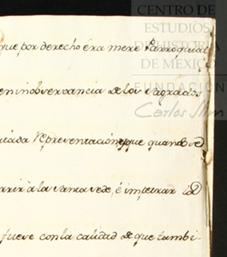 CENTRO DE
ESTUDIOS
DE HISTORIA
DE MÉXICO
FUNDACIÓN
Carlos Slim
que por derecho era mere Parroquial
en inobservancia de los sagrados
Representacion que quando se
la Santa Sede, é impetrar
fuere con la calidad de que tambi-